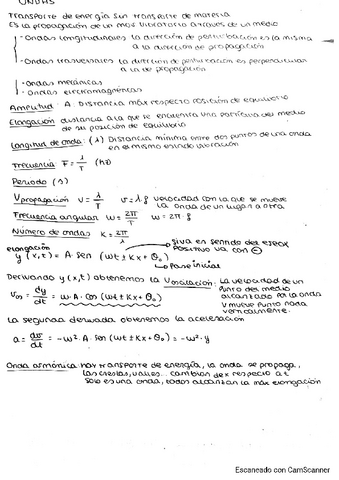 ONDAS
Transporte de energía sin transporte de materia
Es la propagación de un mov vibratorio a través de un medio
- Ondas longitudinales la dirección de perturbación es la misma
a la dirección de propagación
- Ondas transversales la dirección de perturbación es perpendicular
a la de propagación
- Ondas mecánicas
- Ondas electromagnéticas
Amplitud: A. Distancia máx respecto posición de equilibrio
Elongación distancia a la que se encuentra una partícula del medio
de su posición de equilibrio
Longitud de onda: (λ) Distancia mínima entre dos puntos de una onda
en el mismo estado vibración
Frecuencia F = 1/T (Hz)
Periodo (s)
Vpropagación v = λ/T v = λ·f velocidad con la que se mueve
la onda de un lugar a otro
Frecuencia angular ω = 2π/T ω = 2π·f
Número de ondas K = 2π/λ
elongación
si va en sentido del eje x
positivo va con ⊖
y(x,t) = A·sen (ωt ± Kx + θ₀)
fase inicial
Derivando y(x,t) obtenemos la Voscilación: La velocidad de un
punto del medio
alcantado por la onda
v mueve punto
verticalmente.
Vos = dy/dt = ω·A·cos (ωt ± Kx + θ₀)
La segunda derivada obtenemos la aceleración
a = dv/dt = -ω²·A·sen (ωt ± Kx + θ₀) = -ω²·y
Onda armónica hay transporte de energía, la onda se propaga,
las crestas, valles... cambian de x respecto a t
Solo es una onda, todos alcanzan la máx elongación
Escaneado con CamScanner